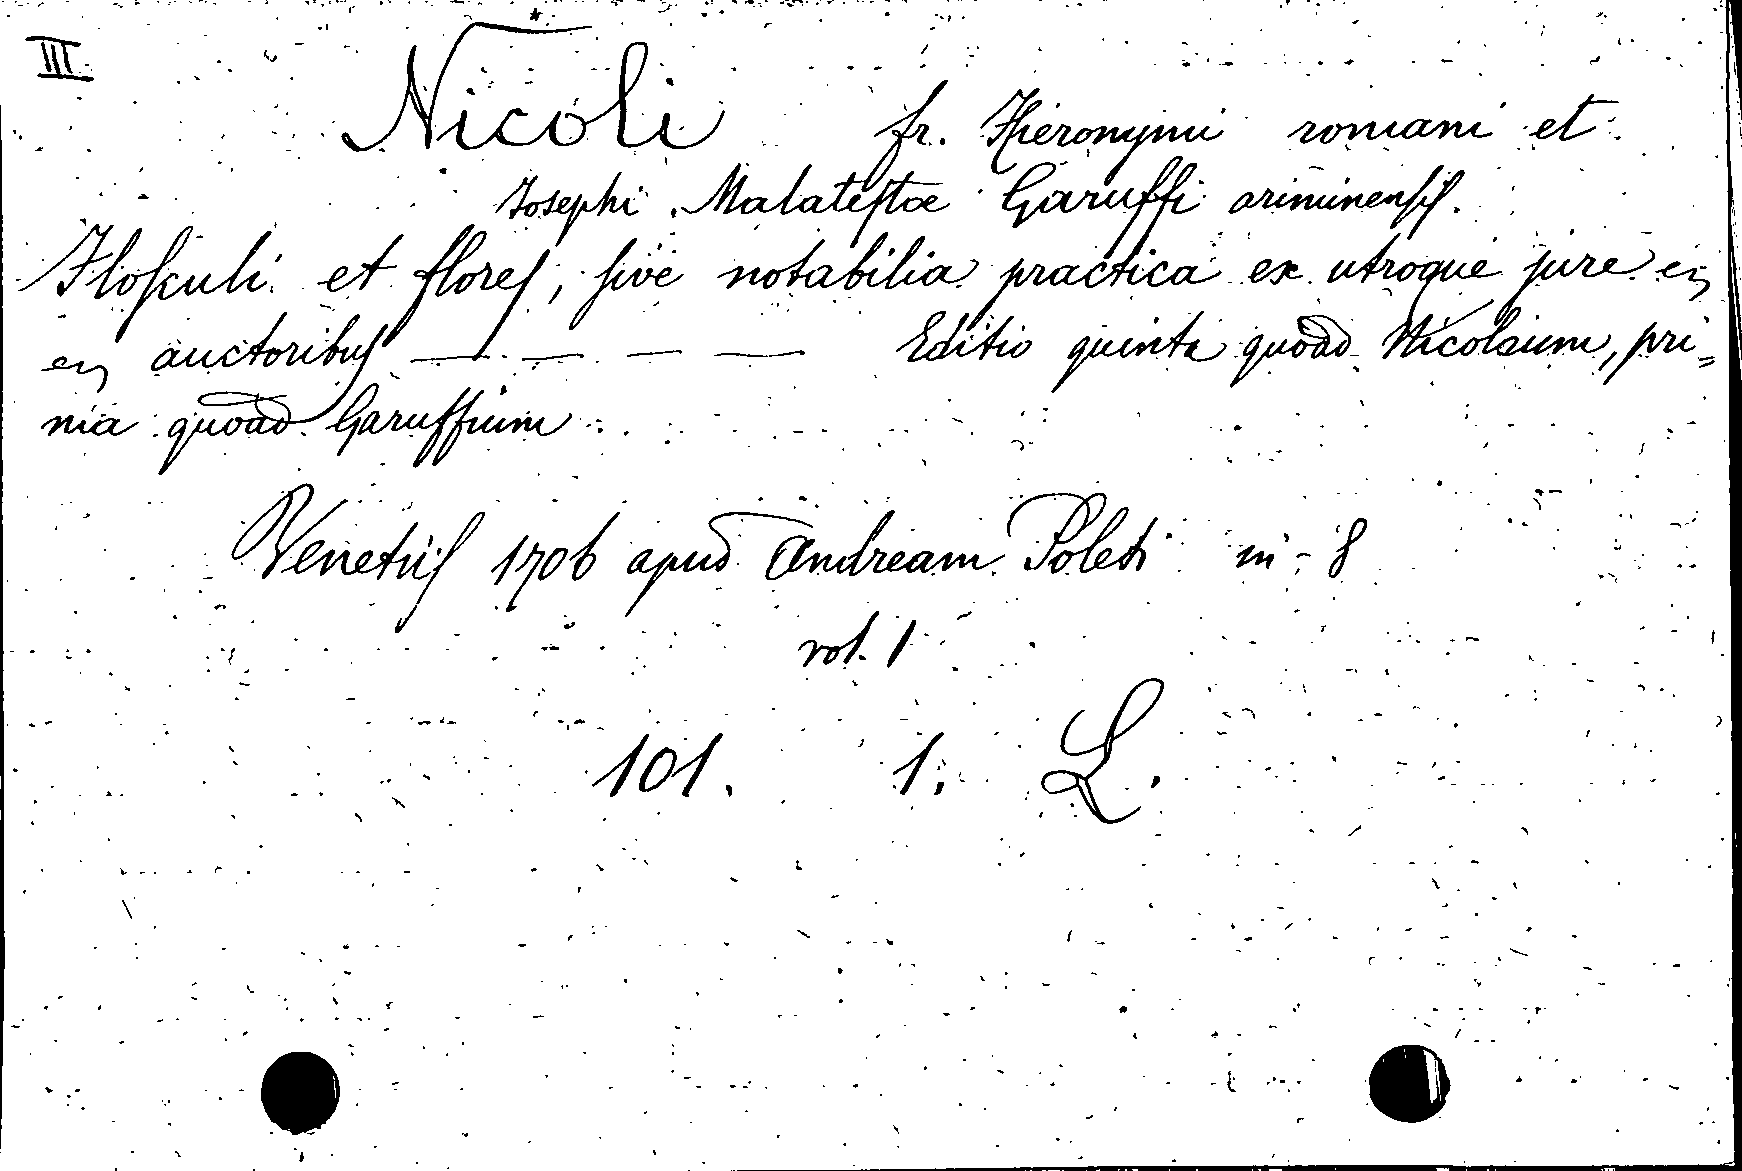 III
Nicoli fr. Hieronymi romani et
Josephi Malateſtae Garuffi ariminenſiſ.
Floſculi et floreſ, ſive notabilia practica ex utroque jure
auctoribuſ — — — — Editio quinta quoad Nicolaium, pri=
ma quoad Garuffium
Venetiiſ 1706 apud Andream Poleti in-8
vol. 1
101. 1. L.